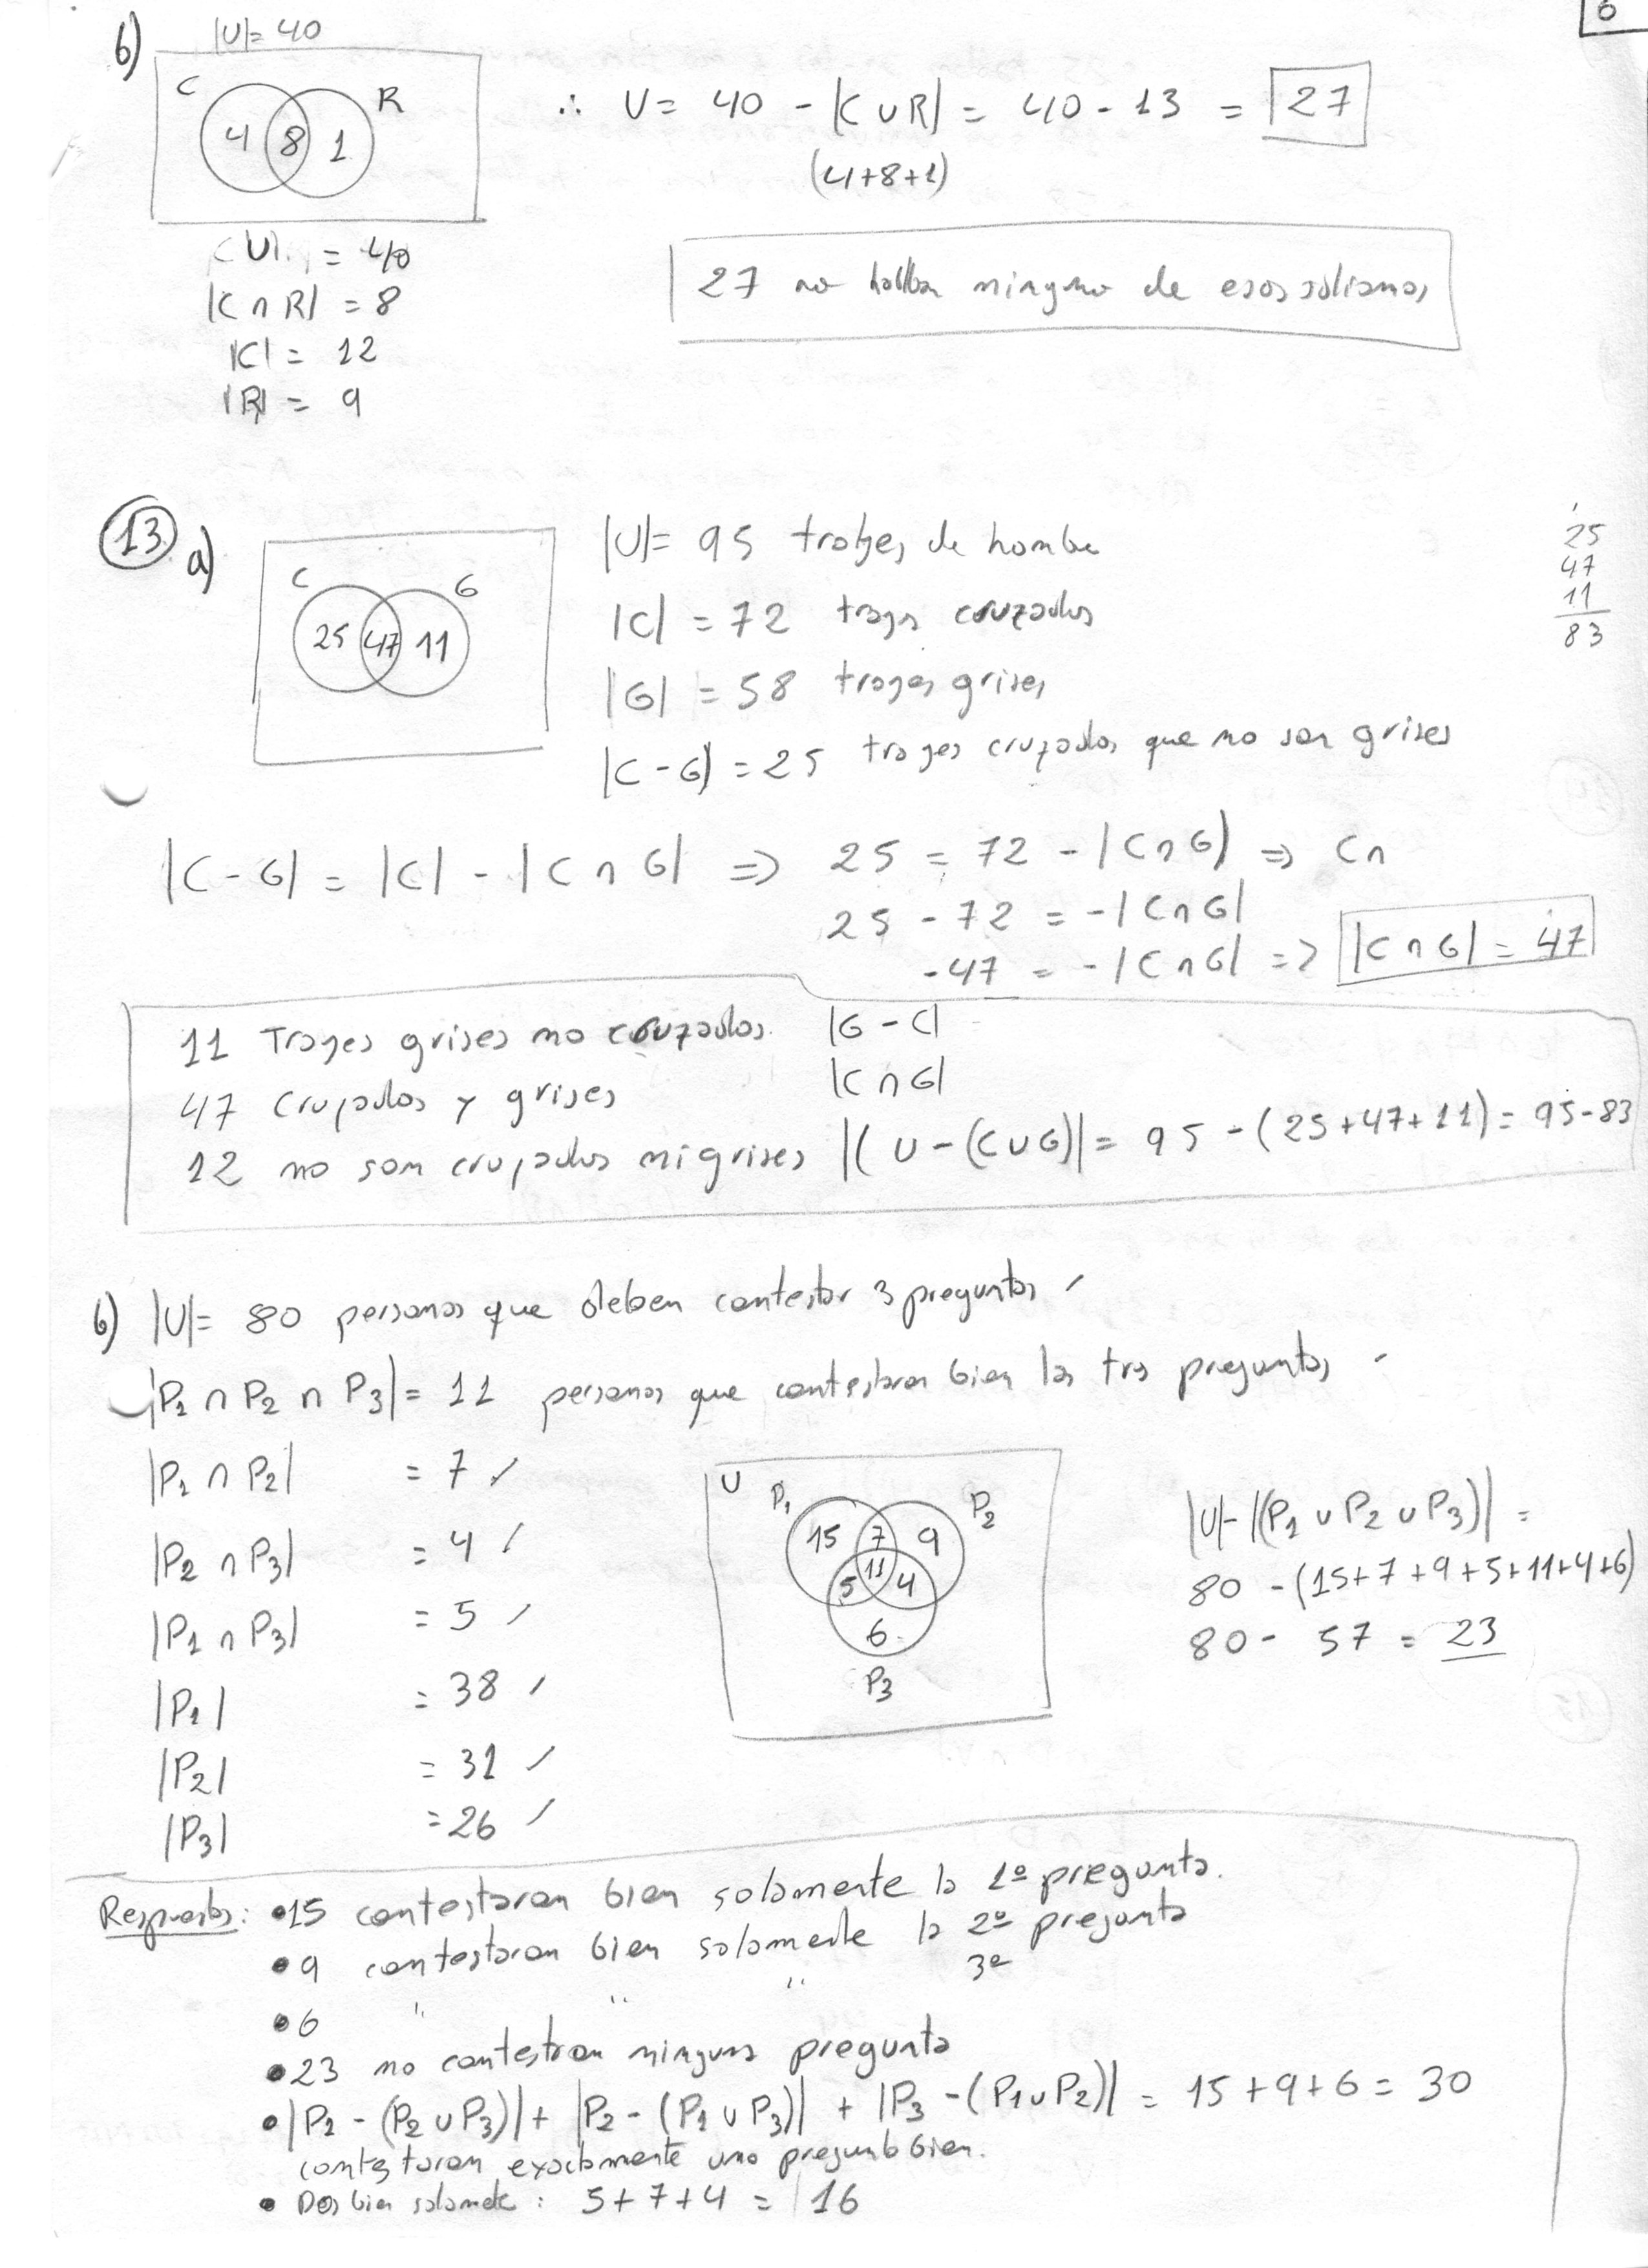 6
b) |U|= 40
C R
4 8 1
∴ U = 40 - |C ∪ R| = 40 - 13 = 27
(4+8+1)
|U| = 40
|C ∩ R| = 8
|C| = 12
|R| = 9
27 no hablan ninguno de esos idiomas
13 a)
C G
25 47 11
|U|= 95 trajes de hombre
|C| = 72 trajes cruzados
|G| = 58 trajes grises
|C - G| = 25 trajes cruzados que no son grises
25
47
11
83
|C - G| = |C| - |C ∩ G| ⇒ 25 = 72 - |C ∩ G| ⇒ C ∩
25 - 72 = -|C ∩ G|
-47 = -|C ∩ G| => |C ∩ G| = 47
11 Trajes grises no cruzados. |G - C|
47 cruzados y grises |C ∩ G|
12 no son cruzados ni grises |( U - (C ∪ G)| = 95 - (25+47+11) = 95-83
b) |U|= 80 personas que deben contestar 3 preguntas
|P1 ∩ P2 ∩ P3| = 11 personas que contestaron bien las tres preguntas
|P1 ∩ P2| = 7
|P2 ∩ P3| = 4
|P1 ∩ P3| = 5
|P1| = 38
|P2| = 31
|P3| = 26
U P1 P2
15 7 9
5 11 4
6
P3
|U|- |(P1 ∪ P2 ∪ P3)| =
80 - (15+7+9+5+11+4+6)
80 - 57 = 23
Respuestas: • 15 contestaron bien solamente la 1º pregunta.
• 9 contestaron bien solamente la 2º pregunta
• 6 " " " 3º
• 23 no contestaron ninguna pregunta
• |P1 - (P2 ∪ P3)| + |P2 - (P1 ∪ P3)| + |P3 - (P1 ∪ P2)| = 15 + 9 + 6 = 30
contestaron exactamente una pregunta bien.
• Dos bien solamente : 5 + 7 + 4 = 16